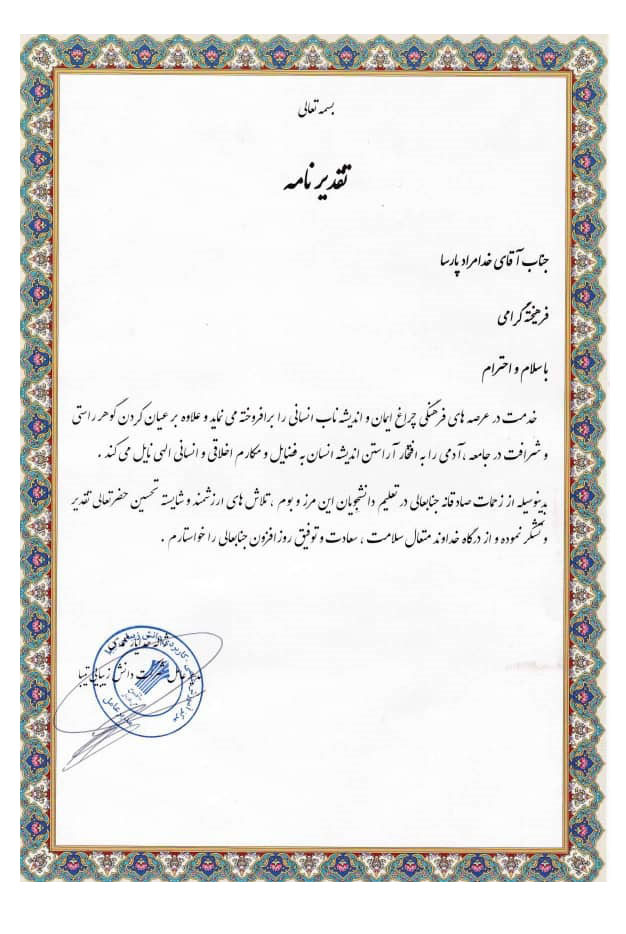 بسمه تعالی
تقدیر نامه
جناب آقای خدامراد پارسا
فرهیخته گرامی
باسلام و احترام
خدمت در عرصه های فرهنگی چراغ ایمان و اندیشه ناب انسانی را برافروخته می نماید و علاوه بر عیان کردن گوهر راستی
و شرافت در جامعه ، آدمی را به افتخار آراستن اندیشه انسان به فضایل و مکارم اخلاقی و انسانی الهی نایل می کند .
بدینوسیله از زحمات صادقانه جنابعالی در تعلیم دانشجویان این مرز و بوم ، تلاش های ارزشمند و شایسته تحسین حضرتعالی تقدیر
و تشکر نموده و از درگاه خداوند متعال سلامت ، سعادت و توفیق روز افزون جنابعالی را خواستارم .
مدیر عامل شرکت دانش زیبایی تیبا